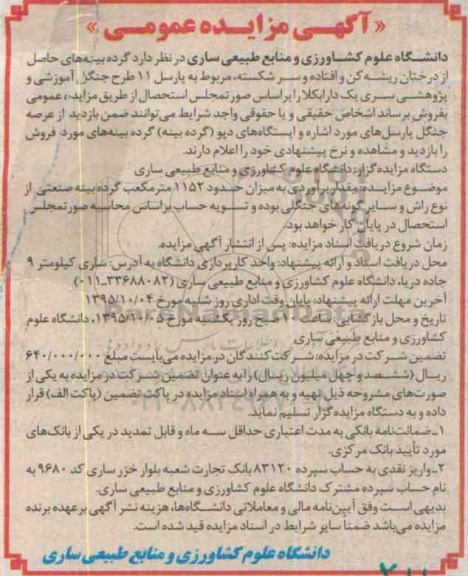 « آگهی مزایده عمومی »
دانشگاه علوم کشاورزی و منابع طبیعی ساری در نظر دارد گرده بینه‌های حاصل
از درختان ریشه کن و افتاده و سر شکسته، مربوط به پارسل ۱۱ طرح جنگل آموزشی و
پژوهشی سری یک دارابکلا را براساس صورتمجلس استحصال از طریق مزایده عمومی
بفروش برساند اشخاص حقیقی و یا حقوقی واجد شرایط می‌توانند ضمن بازدید از عرصه
جنگل پارسل‌های مورد اشاره و ایستگاه‌های دپو (گرده بینه) گرده بینه‌های مورد فروش
را بازدید و مشاهده و نرخ پیشنهادی خود را اعلام دارند.
دستگاه مزایده‌گزار: دانشگاه علوم کشاورزی و منابع طبیعی ساری
موضوع مزایده: مقدار برآوردی به میزان حدود ۱۱۵۲ مترمکعب گرده بینه صنعتی از
نوع راش و سایر گونه‌های جنگلی بوده و تسویه حساب براساس محاسبه صورتمجلس
استحصال در پایان کار خواهد بود.
زمان شروع دریافت اسناد مزایده: پس از انتشار آگهی مزایده.
محل دریافت اسناد و ارائه پیشنهاد: واحد کارپردازی دانشگاه به آدرس: ساری کیلومتر ۹
جاده دریا، دانشگاه علوم کشاورزی و منابع طبیعی ساری (۳۳۶۸۸۰۸۲-۰۱۱)
آخرین مهلت ارائه پیشنهاد: پایان وقت اداری روز شنبه مورخ ۱۳۹۵/۱۰/۰۴
تاریخ و محل بازگشایی: ساعت ۱۰ صبح روز یکشنبه مورخ ۱۳۹۵/۱۰/۰۵، دانشگاه علوم
کشاورزی و منابع طبیعی ساری
تضمین شرکت در مزایده: شرکت کنندگان در مزایده می‌بایست مبلغ ۶۴۰/۰۰۰/۰۰۰
ریال (ششصد و چهل میلیون ریال) را به عنوان تضمین شرکت در مزایده به یکی از
صورت‌های مشروحه ذیل تهیه و به همراه اسناد مزایده در پاکت تضمین (پاکت الف) قرار
داده و به دستگاه مزایده گزار تسلیم نماید
۱_ ضمانت‌نامه بانکی به مدت اعتباری حداقل سه ماه و قابل تمدید در یکی از بانک‌های
مورد تأیید بانک مرکزی.
۲_ واریز نقدی به حساب سپرده ۸۳۱۲۰ بانک تجارت شعبه بلوار خزر ساری کد ۹۶۸۰ به
نام حساب سپرده مشترک دانشگاه علوم کشاورزی و منابع طبیعی ساری.
بدیهی است وفق آیین‌نامه مالی و معاملاتی دانشگاه‌ها، هزینه نشر آگهی برعهده برنده
مزایده می‌باشد ضمناً سایر شرایط در اسناد مزایده قید شده است.
دانشگاه علوم کشاورزی و منابع طبیعی ساری